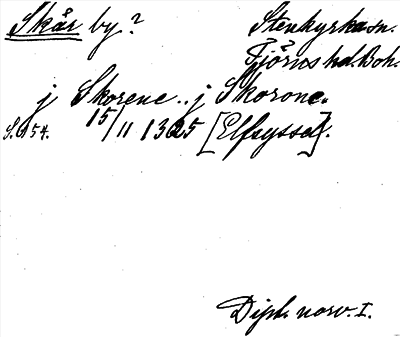 Skår by? Stenkyrka sn.
Tjörns hd. Boh.
j Skorene .. j Skorone.
S. 154. 15/11 1325 [Elfsyssel].
Dipl. norv. I.